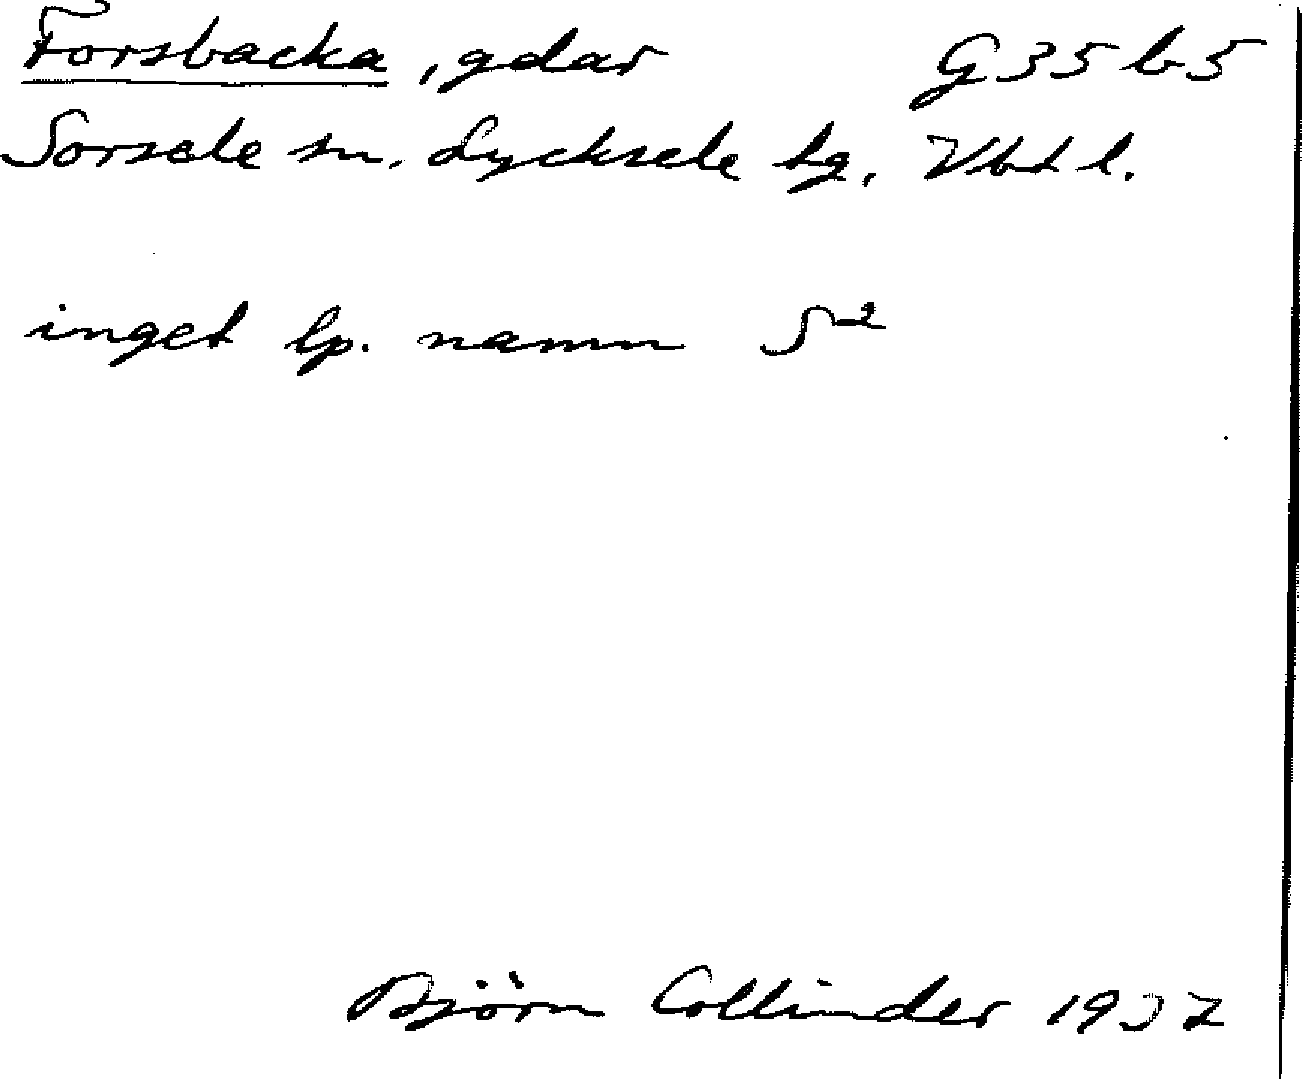 Forsbacka, gdar G35b5
Sorsele sn. Lycksele lg, Vbtl.
inget lp. namn S²
Björn Collinder 1937